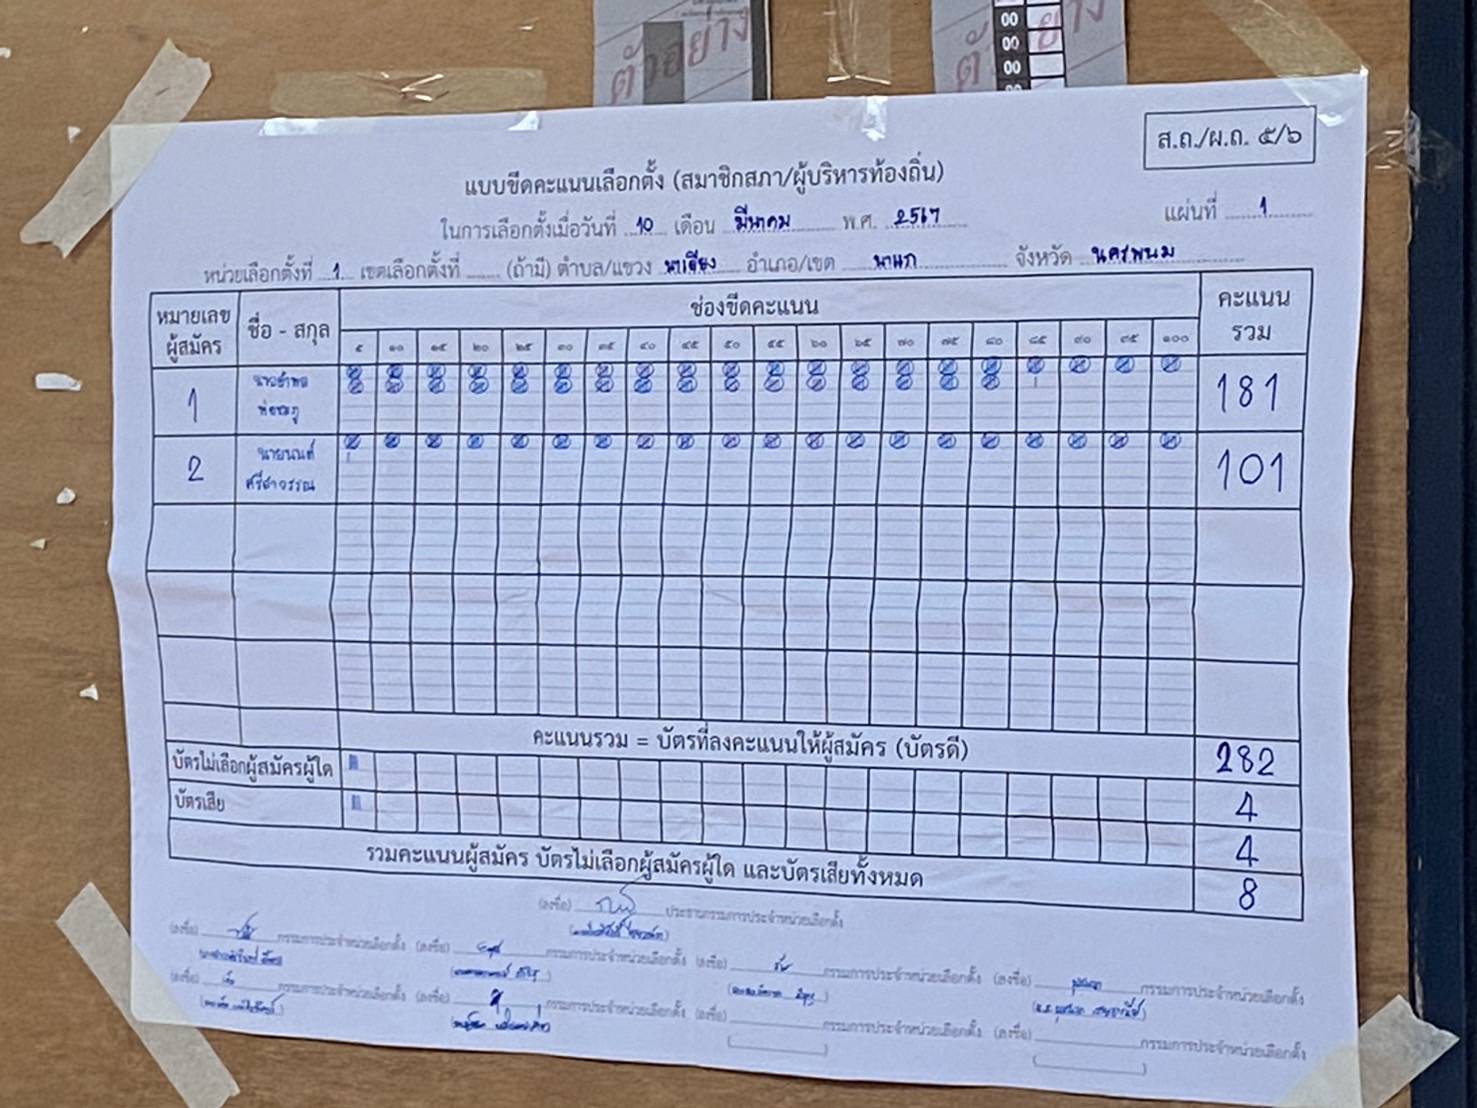 ตัวอย่าง
00
00
00
ส.ถ./ผ.ถ. ๕/๖
แบบขีดคะแนนเลือกตั้ง (สมาชิกสภา/ผู้บริหารท้องถิ่น)
ในการเลือกตั้งเมื่อวันที่ 10 เดือน มีนาคม พ.ศ. 2567 แผ่นที่ 1
หน่วยเลือกตั้งที่ 1 เขตเลือกตั้งที่ (ถ้ามี) ตำบล/แขวง นาเลียง อำเภอ/เขต นาแก จังหวัด นครพนม
หมายเลขผู้สมัคร ชื่อ - สกุล ช่องขีดคะแนน คะแนนรวม
๕ ๑๐ ๑๕ ๒๐ ๒๕ ๓๐ ๓๕ ๔๐ ๔๕ ๕๐ ๕๕ ๖๐ ๖๕ ๗๐ ๗๕ ๘๐ ๘๕ ๙๐ ๙๕ ๑๐๐
1 181
2 นายนนต์ 101
คะแนนรวม = บัตรที่ลงคะแนนให้ผู้สมัคร (บัตรดี) 282
บัตรไม่เลือกผู้สมัครผู้ใด 4
บัตรเสีย 4
รวมคะแนนผู้สมัคร บัตรไม่เลือกผู้สมัครผู้ใด และบัตรเสียทั้งหมด 8
(ลงชื่อ) ประธานกรรมการประจำหน่วยเลือกตั้ง
(ลงชื่อ) กรรมการประจำหน่วยเลือกตั้ง (ลงชื่อ) กรรมการประจำหน่วยเลือกตั้ง (ลงชื่อ) กรรมการประจำหน่วยเลือกตั้ง (ลงชื่อ) กรรมการประจำหน่วยเลือกตั้ง
(ลงชื่อ) กรรมการประจำหน่วยเลือกตั้ง (ลงชื่อ) กรรมการประจำหน่วยเลือกตั้ง (ลงชื่อ) กรรมการประจำหน่วยเลือกตั้ง (ลงชื่อ) กรรมการประจำหน่วยเลือกตั้ง